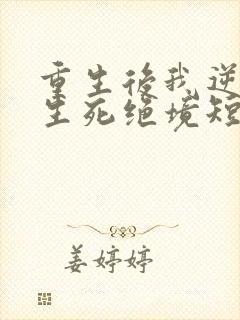 重生后我逆
生死绝境短
姜婷婷